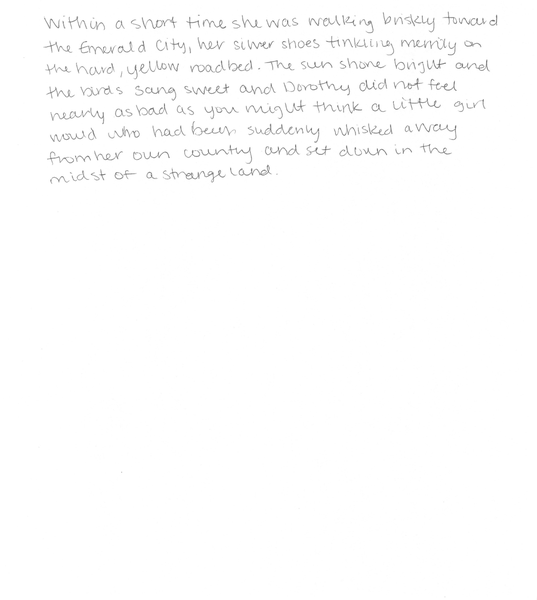 Within a short time she was walking briskly toward
the Emerald City, her silver shoes tinkling merrily on
the hard, yellow roadbed. The sun shone bright and
the birds sang sweet and Dorothy did not feel
nearly as bad as you might think a little girl
would who had been suddenly whisked away
from her own country and set down in the
midst of a strange land.